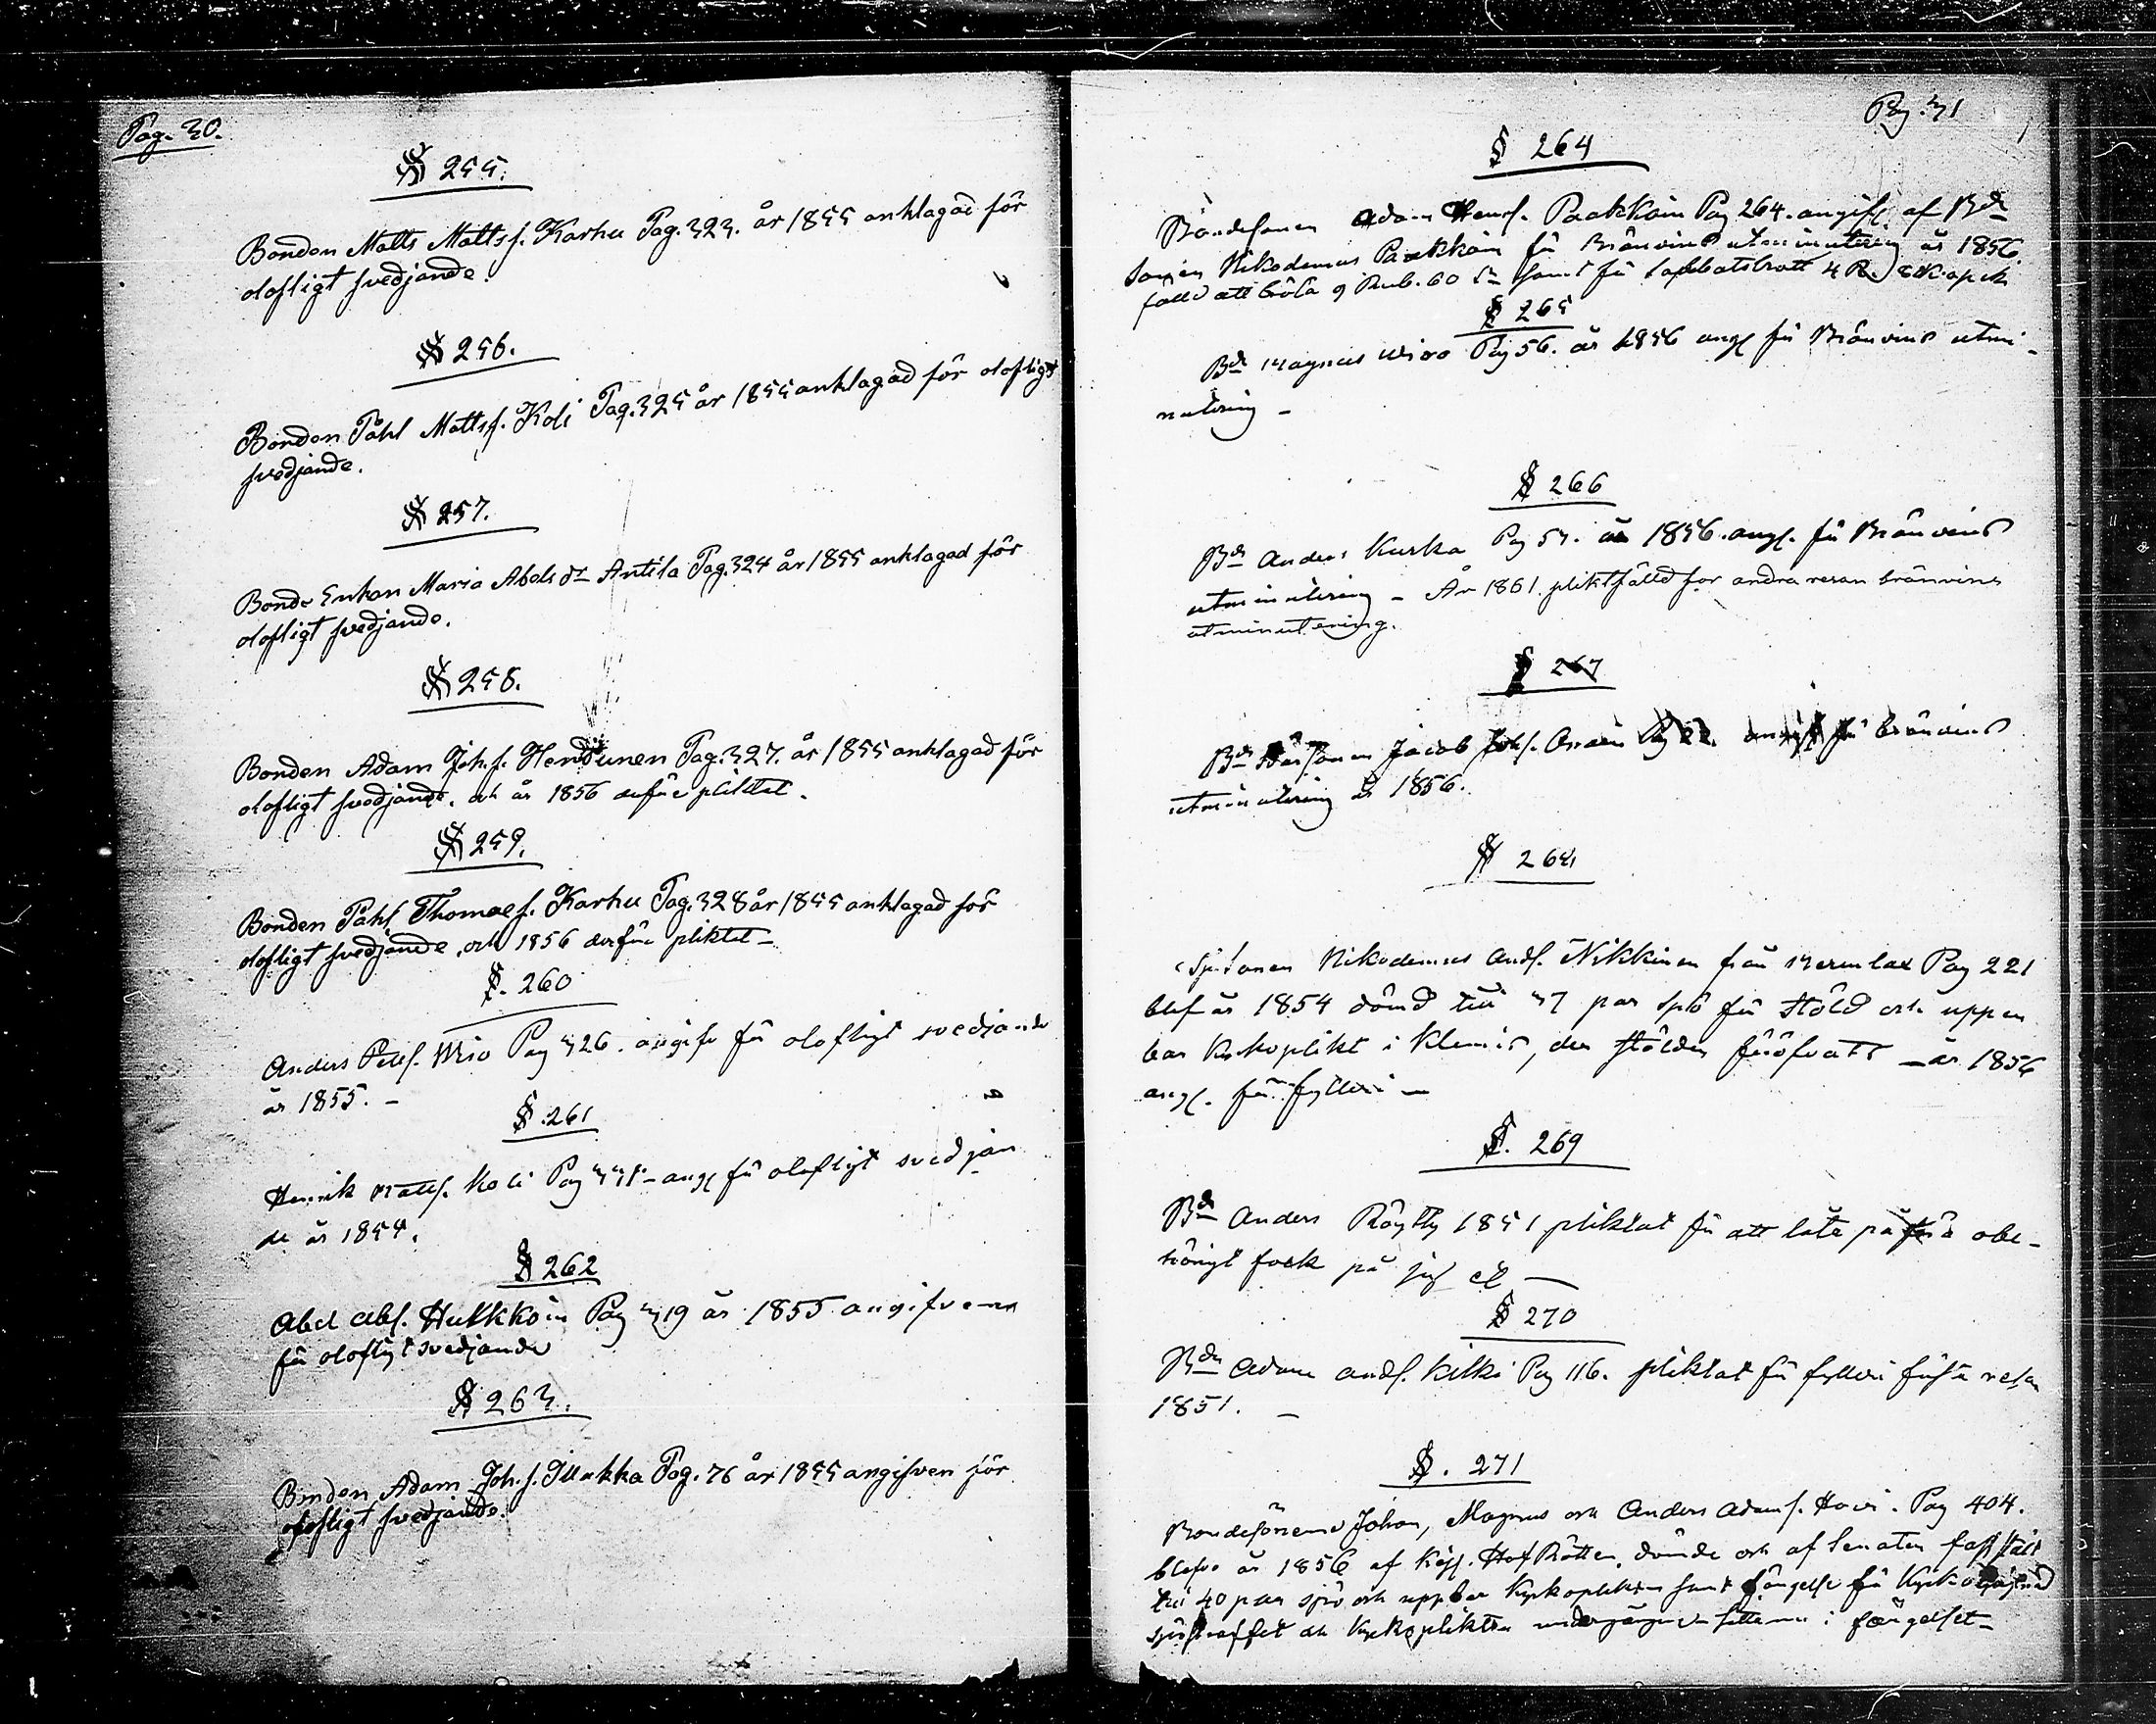 Pag. 30.
§ 255.
Bonden Matts Mattsf. Karhu Pag. 323. år 1855 anklagad för
olofligt svedjande.
§ 256.
Bonden Påhl Mattsf. Koli Pag. 325 år 1855 anklagad för olofligt
svedjande.
§ 257.
Bonde Enkan Maria Abels dr Antila Pag. 324 år 1855 anklagad för
olofligt svedjande.
§ 258.
Bonden Adam Joh.f. Hendunen Pag. 327. år 1855 anklagad för
olofligt svedjande. och år 1856 derföre pliktat.
§ 259.
Bonden Påhl Thomasf. Karhu Pag. 328 år 1855 anklagad för
olofligt svedjande, och 1856 derföre pliktat –
§. 260
Anders Petersf. Wiro Pag 326. angifv för olofligt svedjande
år 1855. –
§. 261
Henrik Mattsf. Koli Pag angf för olofligt svedjan
de år 1854.
§ 262
Abel Abf. Hukkoin Pag 319 år 1855 angifven
för olofligt svedjande
§ 263.
Bonden Adam Joh.f. Illukka Pag. 76 år 1855 angifven för
olofligt svedjande.
Pag. 31
§ 264
Bondesonen Adam Henrf. Paakkoin Pag 264. angifv af Bde
sonen Nikodemus Paakkoin för Bränvins utminutering år 1856.
fälld att böta 9 Rub. 60 samt för sabbatsbrott 4 R. kopek
§ 265
Bdn Magnus Wiro Pag 56. år 1856 angf för Bränvins utmi-
nutering –
§ 266
Bdn Anders Kurka Pag 53. år 1856. angf. för Bränvins
utminutering – År 1861 pliktfälld for andra resan bränvins
utminutering.
§ 267
Bde Sonen Jacob Johf. Pag 22. angif för bränvins
utminutering år 1856.
§ 268
Nikodemus Andf. Nikkinen från Mermlax Pag 221
blef år 1854 dömd till 37 par spö för stöld och uppen
bar kyrkoplikt i Klemis, der stölden föröfvats – år 1856
angf. för fylleri –
§. 269
Bdn Anders Röytty 1851 pliktat för att låta på föra obe-
hörigt folk på
§ 270
Bdn Adam Andf. Kilki Pag 116. pliktat för fylleri första resan
1851. –
§. 271
Bondesönerne Johan, Magnus och Anders Adamf. Hovi. Pag 404.
blefvo år 1856 af Kejs. HofRätten dömde och af Senaten fastställt
till 40 par spö och uppbar Kyrkoplikten samt fängelse för Kyrko
spöstraffet och Kyrkoplikten undergångne sitta nu i fängelset –